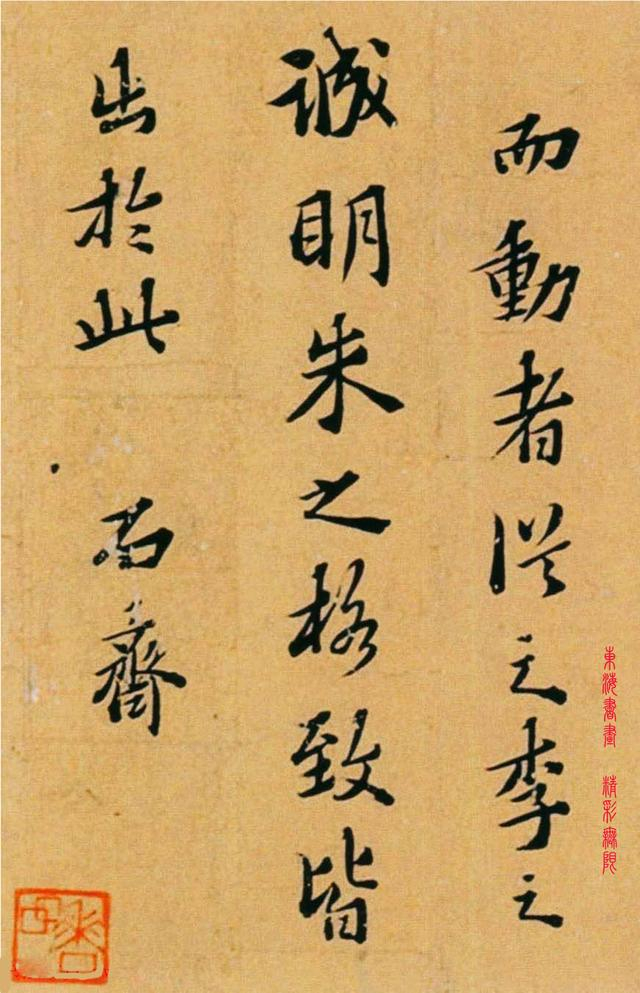 而動者從之李之
誠明朱之格致皆
出於此 石齋
東海書畫 精彩無限